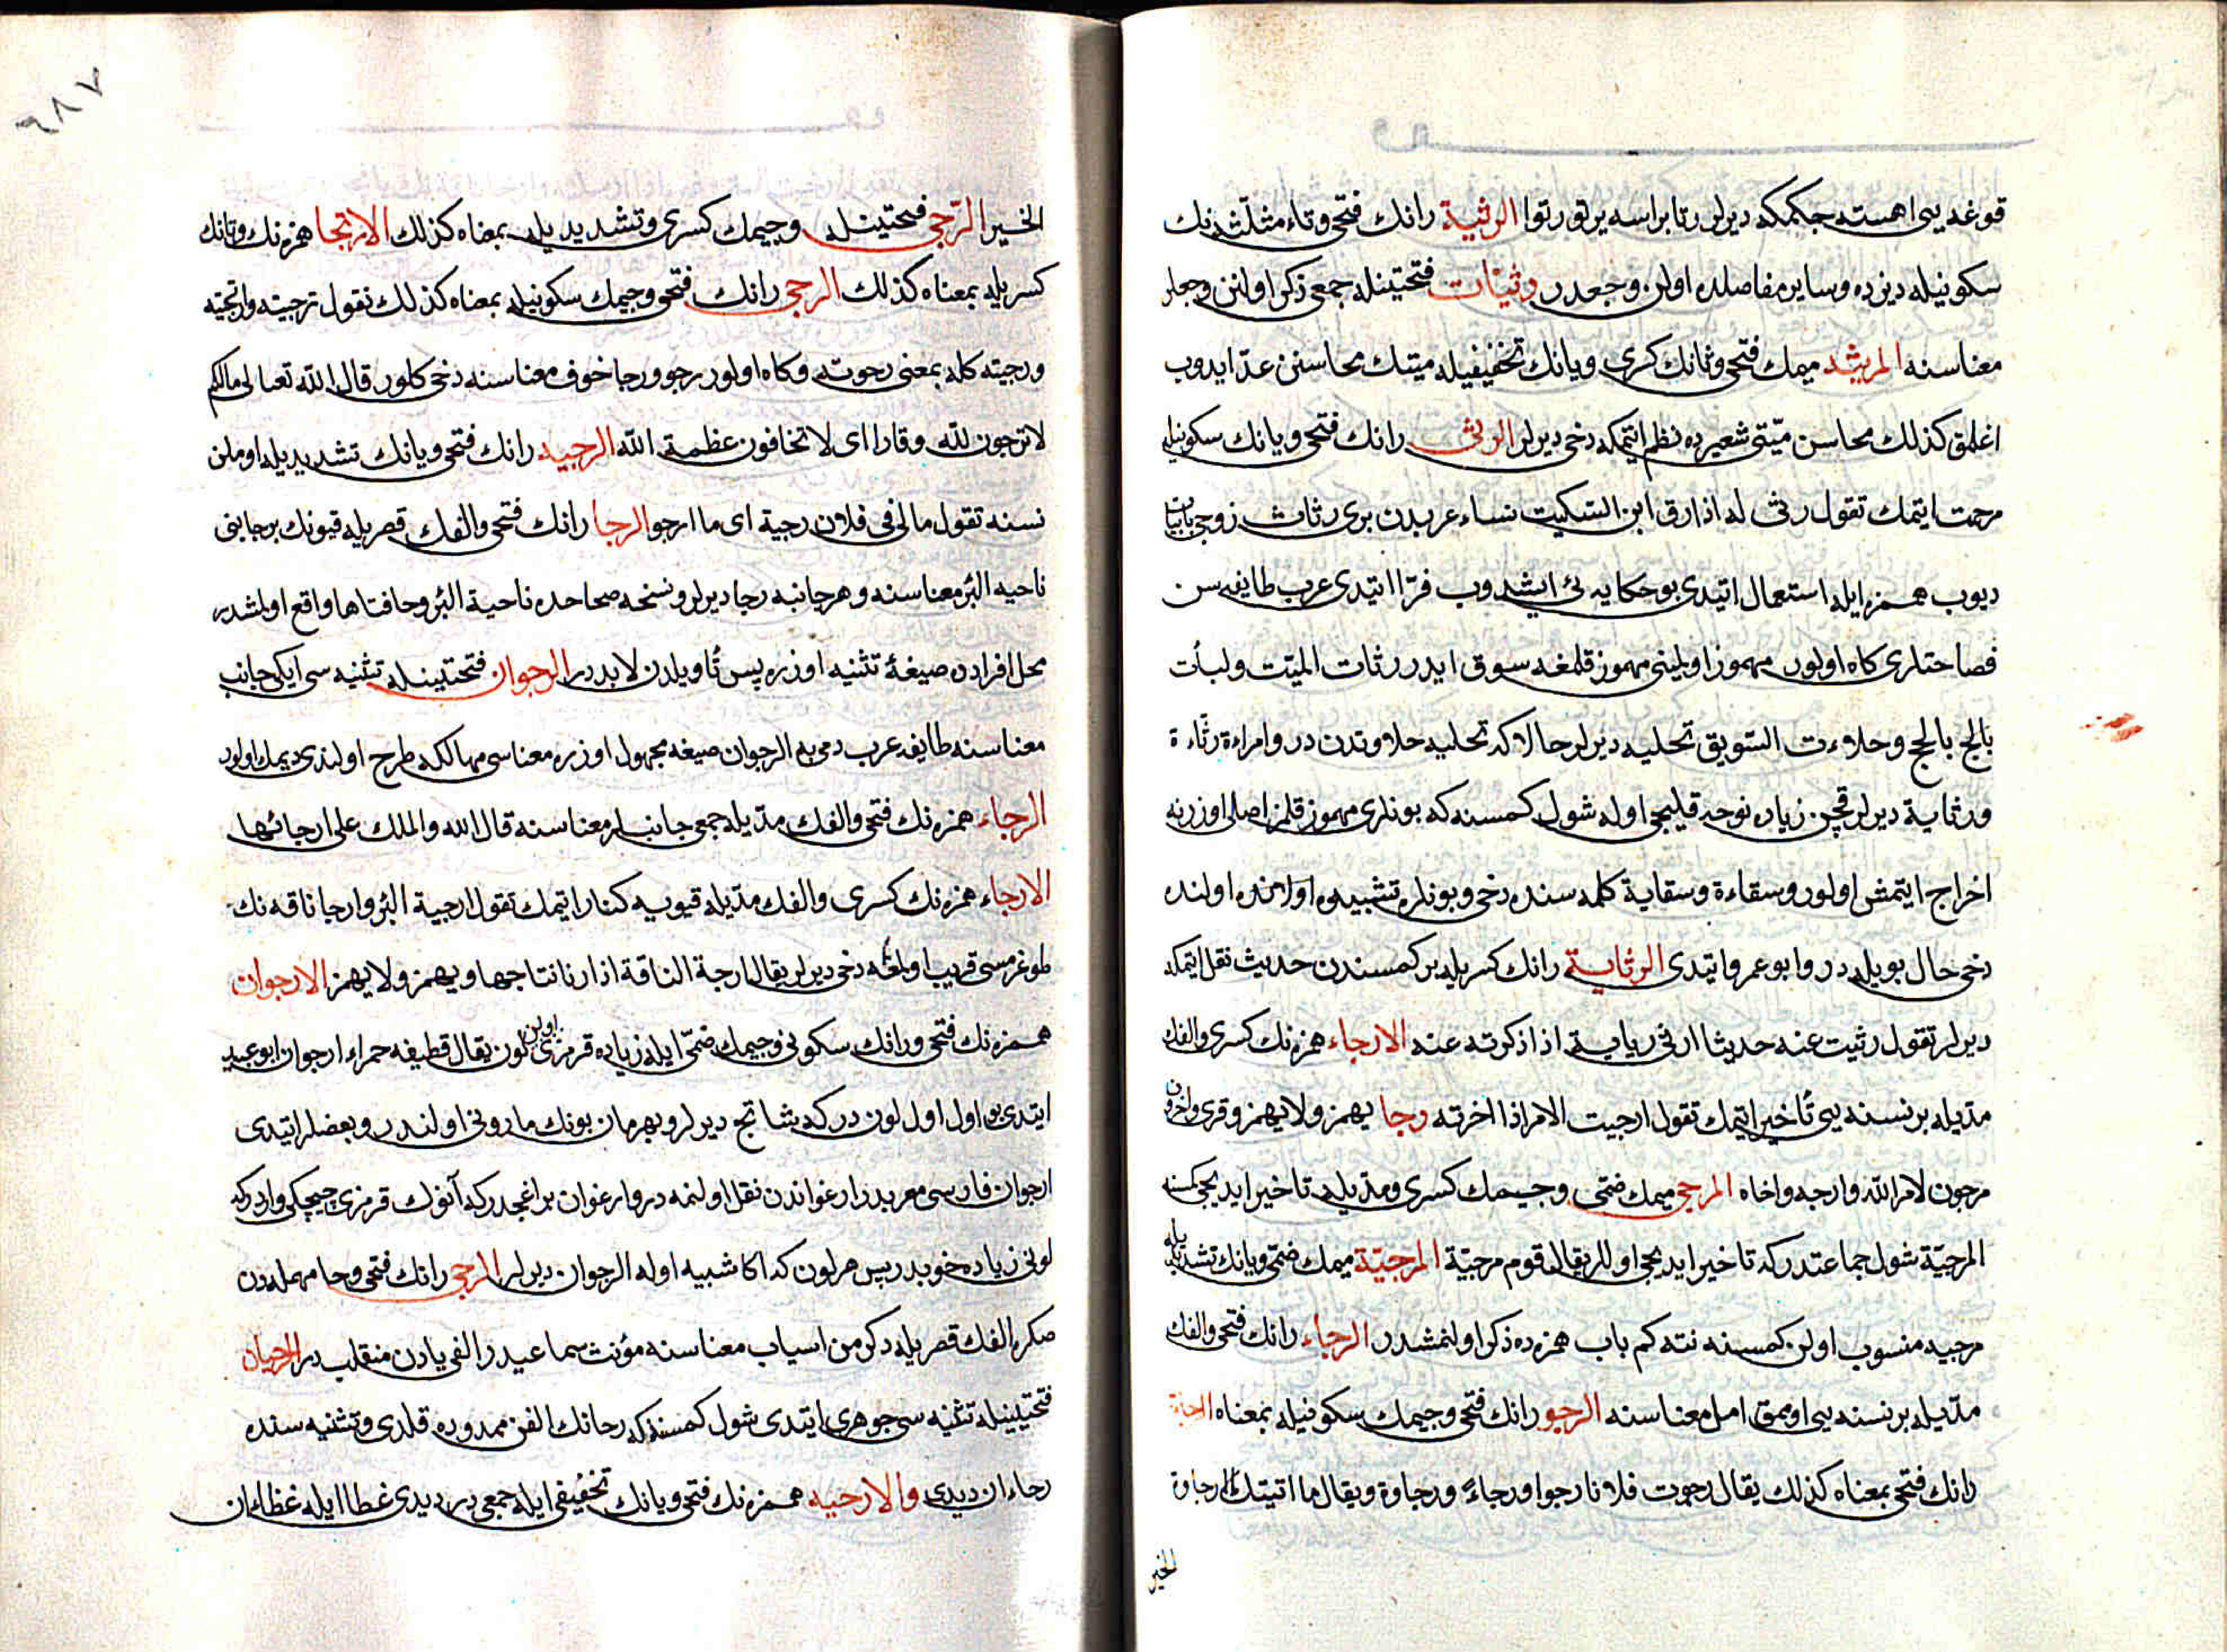 قوغه يى اهسته جكمكه ديرلر رتا براسه يرتو رتوا الرثية رانك فتحى وثاء مثلثه نك
سكونيله ديزده وساير مفاصلده اولن وجعدر رثيات فتحتينله جمعى ذكر اولنن وجعلر
معناسنه المرثيه ميمك فتحى وثانك كسرى ويانك تخفيفيله ميتك محاسنن عد ايدوب
اغلمق كذلك محاسن ميتى شعيرده نظم ايتمكه دخى ديرلر الرثى رانك فتحى ويانك سكونيله
مرحمت ايتمك تقول رثى له اذا رق ابن السكيت نساء عربدن برى رثات زوجى بابيات
ديوب همزه ايله استعمال اتيدى بو حكايه يى ايشدوب فرا ايتدى عرب طايفه سن
فصاحتلرى كاه اولور مهموز اولمينى مهموز قلمغه سوق ايدر رثات الميت ولبأت
بالحج وحلاءت السويق تحليه ديرلر حالا كه تحليه حلاوتدن در وامراءة رثاءة
ورثاية ديرلر قچن زياده نوحه قليجى اوله شول كمسنه كه بونلرى مهموز قلمز اصلى اوزرينه
اخراج ايتمش اولور وسقاءة وسقاية كلمه سنده دخى وبونلره تشبيه اولنده
دخى حال بويله در وابو عمرو ايتدى الرثاية رانك كسريله بر كمسندن حديث نقل ايتمكه
ديرلر تقول رثيت عنه حديثا ارثى رياية اذا ذكرته عنه الارجاء همزه نك كسرى والفك
مديله بر نسنه يى تأخير ايتمك تقول ارجيت الامر اذا اخرته رجا يهمز ولا يهمز وقرى واخرون
مرجون لامر الله وارجه واخاه المرجى ميمك ضمى وجيمك كسرى ومديله تاخير ايديجى كمسنه
المرجية شول جماعتدر كه تاخير ايديجى اولالر يقال قوم مرجية المرجية ميمك ضمى ويانك تشديديله
مرجيه منسوب اولن كمسنه نته كم باب همزه ده ذكر اولنمشدر الرجاء رانك فتحى والفك
مديله بر نسنه يى اومق امل معناسنه الرجو رانك فتحى وجيمك سكونيله بمعناه الرجاة
رانك فتحى بمعناه كذلك يقال رجوت فلانا رجوا ورجاء ورجاوة ويقال ما اتيتك الا رجاوة
الخير
٦٨٧
الخير الترجى فتحتينله وجيمك كسرى وتشديديله بمعناه كذلك الارتجا همزه نك وتانك
كسريله بمعناه كذلك الرجى رانك فتحى وجيمك سكونيله بمعناه كذلك تقول ترجيته وارتجيته
ورجيته كله بمعنى رجوته وكاه اولور رجو ورجا خوف معناسنه دخى كلور قال الله تعالى ما لكم
لا ترجون لله وقارا اى لا تخافون عظمة الله الرجيه رانك فتحى ويانك تشديديله اوملن
نسنه تقول مالى فى فلان رجية اى ما ارجو الرجا رانك فتحى والفك قصريله قيونك بر جانبى
ناحيه البئر معناسنه وهر جانبه رجا ديرلر ونسخه صحاحده ناحية البئر وحافتاها واقع اولمشدر
محل افرادده صيغۀ تثنيه اوزره پس تأويلدن لا بد در الرجوان فتحتينله تثنيه سى ايكى جانب
معناسنه طايفه عرب رمى به الرجوان صيغه مجهول اوزره معناسى مهالكه طرح اولندى ديمك اولور
الرجاء همزه نك فتحى والفك مديله جمعى جانبلر معناسنه قال الله والملك على ارجائها
الارجاء همزه نك كسرى والفك مديله قيويه كنار ايتمك تقول ارجية البئر وارجا ناقه نك
طوغرمسى قريب اولمغه دخى ديرلر يقال ارجة الناقة اذا دنا نتاجها ويهمز ولا يهمز الارجوان
همزه نك فتحى ورانك سكونى وجيمك ضمى ايله زياده قرمزى اولن لون يقال قطيفه حمراء ارجوان ابو عبيد
ايتدى بو اول اول لون در كه نشاستج ديرلر وبهرمان بونك مادونى اولندر وبعضلر ايتدى
ارجوان فارسى معربدر ارغواندن نقل اولنمه در وارغوان بر اغجدر كه آنوك قرمزى چيچكى واردر كه
لونى زياده خوبدر پس هر لون كه اكا شبيه اوله الرجوان ديرلر الرحى رانك فتحى وحا مهمله دن
صكره الفك قصريله دكرمن اسياب معناسنه مؤنث سماعيدر الفى يادن منقلبه در الرحيان
فتحتينله تثنيه سى جوهرى ايتدى شول كمسنه كه رحانك الفن ممدوده قلدى وتثنيه سنده
رحاءان ديدى والارحيه همزه نك فتحى ويانك تخفيفى ايله جمعى در ديدى غطا ايله غطاءان